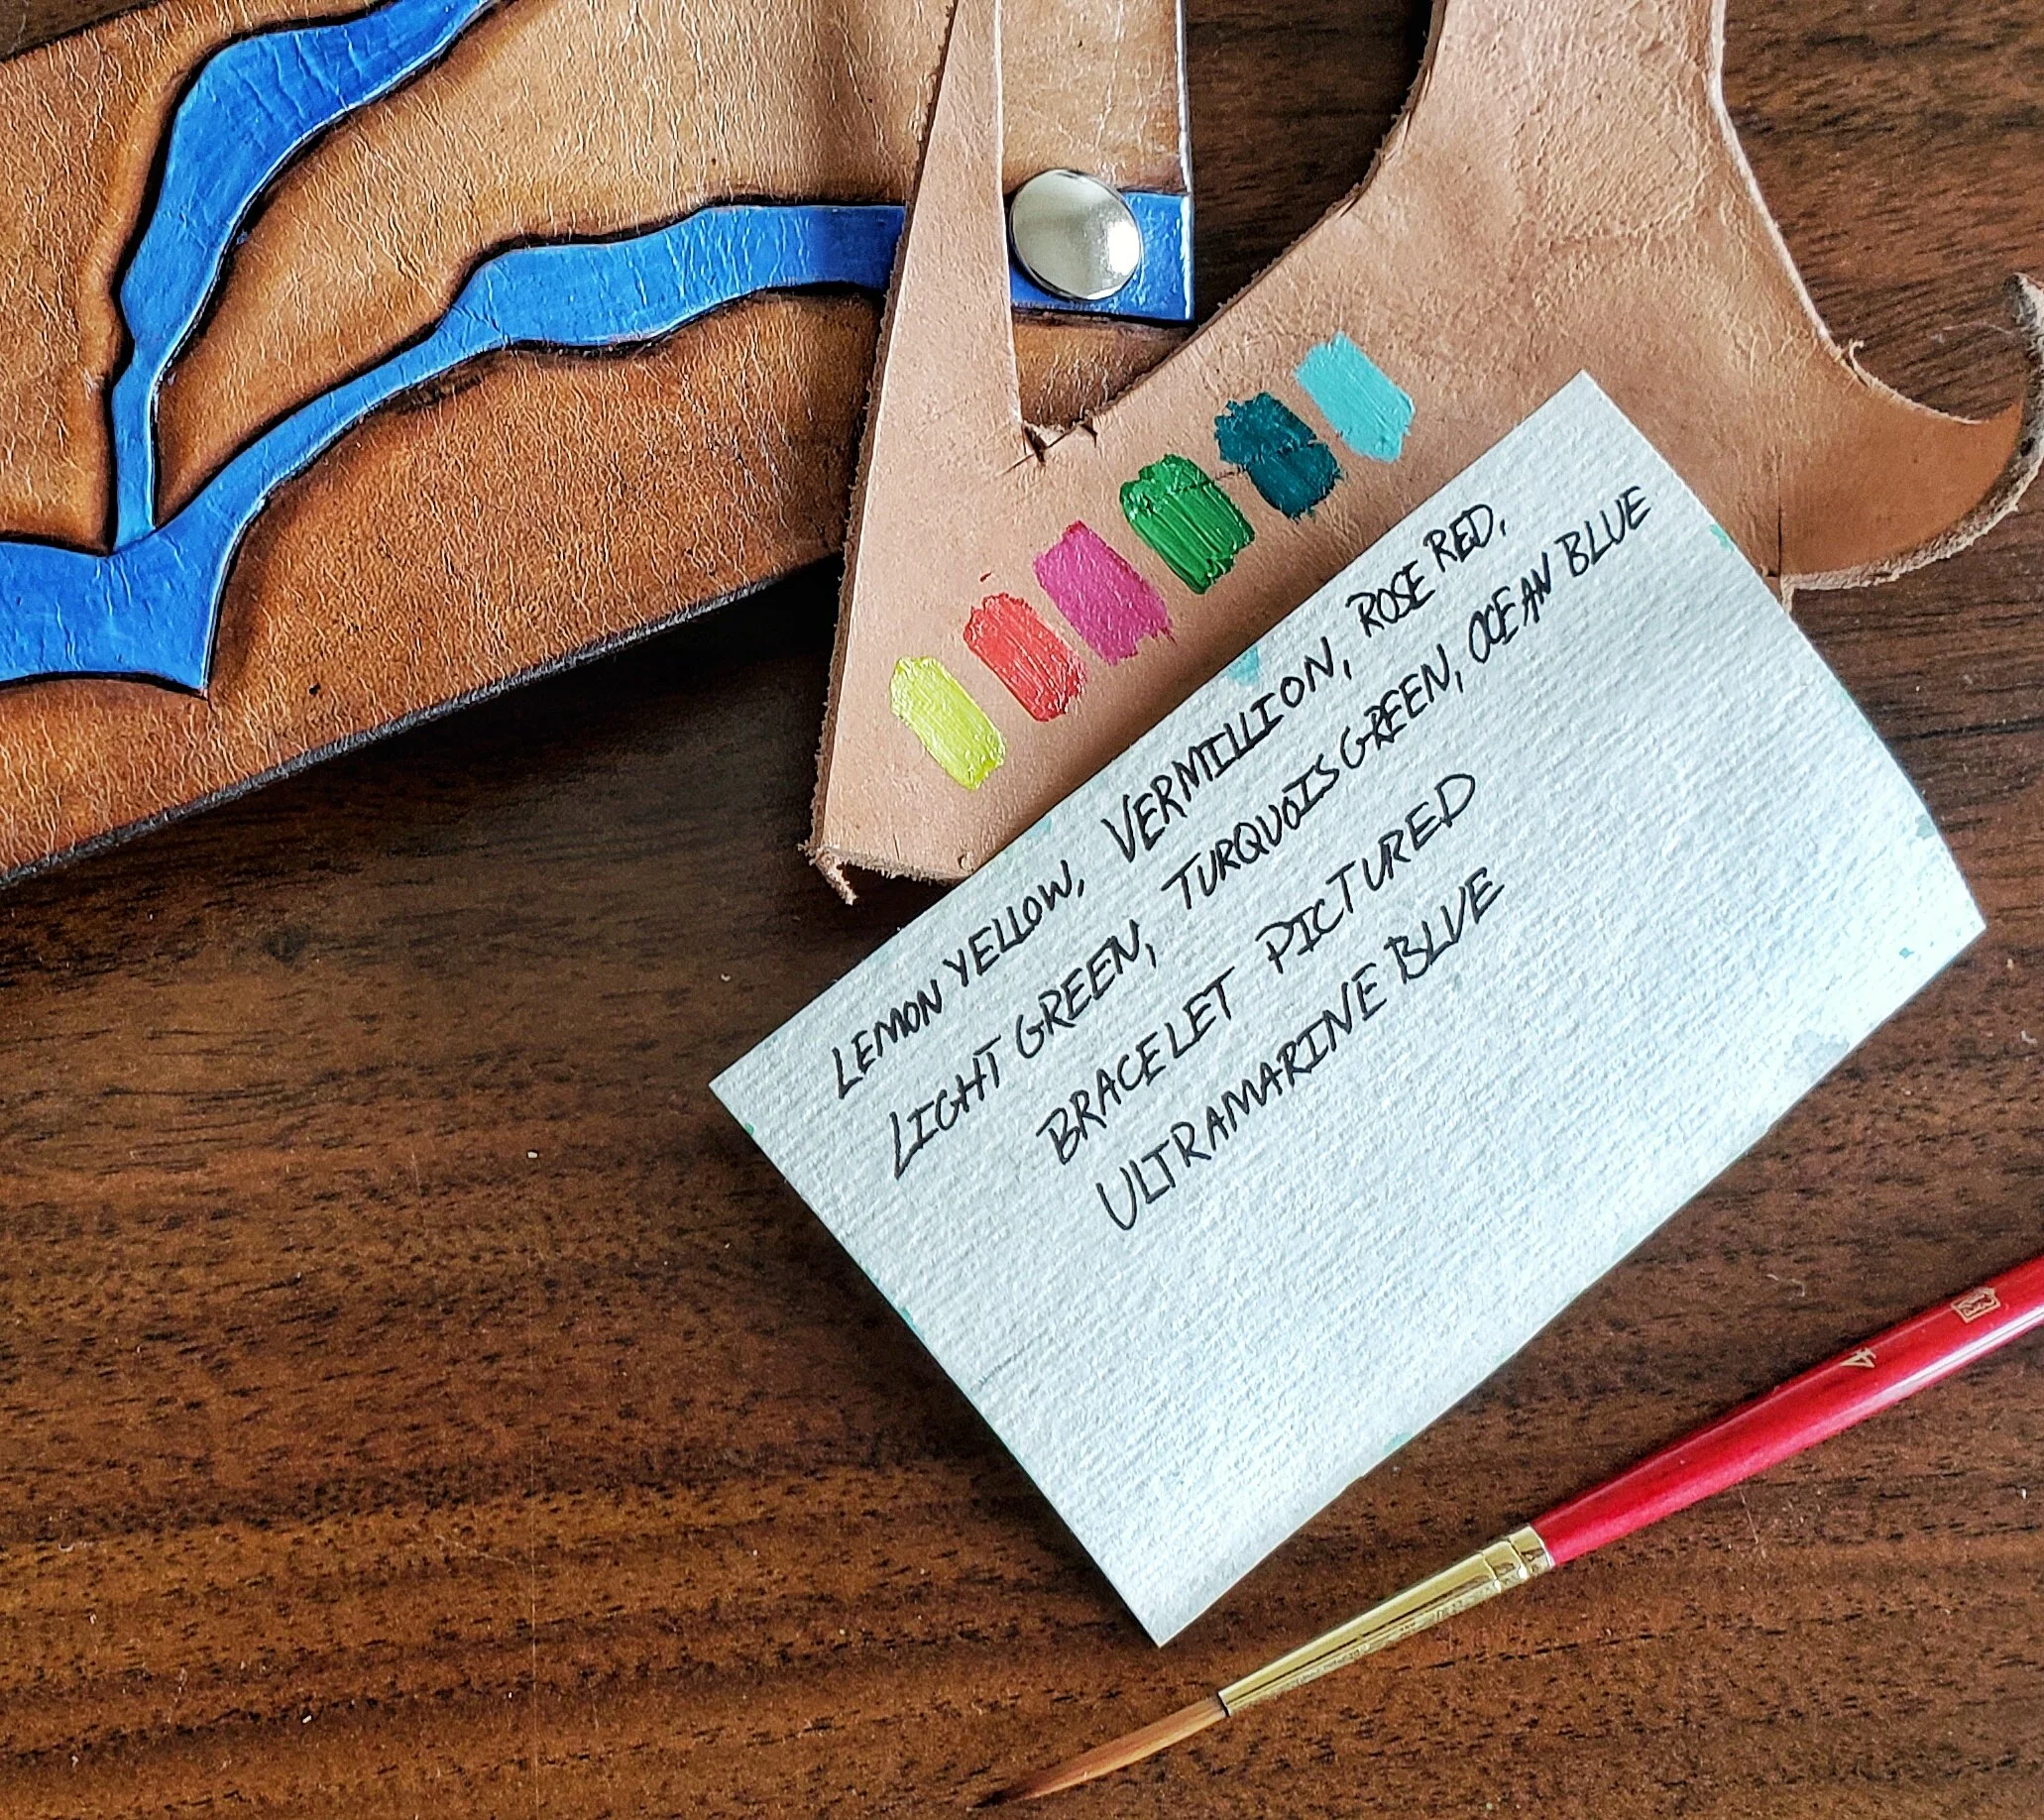 LEMON YELLOW, VERMILLION, ROSE RED,
LIGHT GREEN, TURQUOIS GREEN, OCEAN BLUE
BRACELET PICTURED
ULTRAMARINE BLUE
4